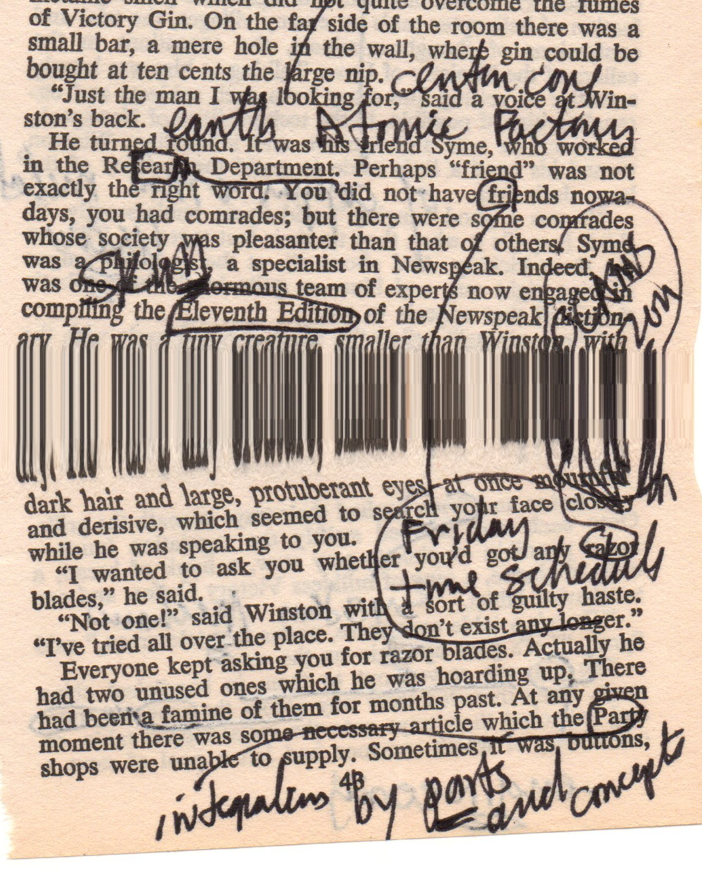 smell which did not quite overcome the fumes
of Victory Gin. On the far side of the room there was a
small bar, a mere hole in the wall, where gin could be
bought at ten cents the large nip.
“Just the man I was looking for,” said a voice at Win-
ston’s back.
earth Atomic
He turned round. It was his friend Syme, who worked
in the Research Department. Perhaps “friend” was not
exactly the right word. You did not have friends nowa-
days, you had comrades; but there were some comrades
whose society was pleasanter than that of others. Syme
was a philologist, a specialist in Newspeak. Indeed,
was one of the enormous team of experts now engaged in
compiling the Eleventh Edition of the Newspeak Diction-
ary He was a tiny creature, smaller than Winston, with
dark hair and large, protuberant eyes, at once mournful
and derisive, which seemed to search your face closely
Friday
while he was speaking to you.
“I wanted to ask you whether you’d got any razor
time
blades,” he said.
“Not one!” said Winston with a sort of guilty haste.
“I’ve tried all over the place. They don’t exist any longer.”
Everyone kept asking you for razor blades. Actually he
had two unused ones which he was hoarding up. There
had been a famine of them for months past. At any given
moment there was some necessary article which the Party
shops were unable to supply. Sometimes it was buttons,
48
by parts
and concepts